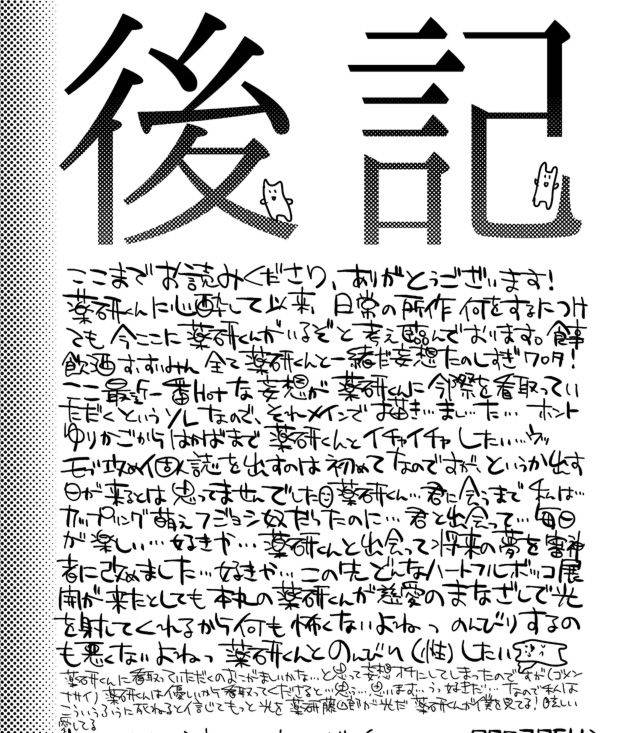 後記
ここまでお読みくださり、ありがとうございます!
薬研くんに心酔して以来、日常の所作 何をするにつけ
ても 今ここに 薬研くんがいるぞと 考え 臨んでおります。食事
飲酒 すいみん 全て薬研くんと一緒だ妄想 たのしすぎワロタ!
ここ最近一番Hotな妄想が 薬研くんに今際を看取ってい
ただくというソレなので、それメインで お描き…ました… ホント
ゆりかごから はかばまで 薬研くんとイチャイチャ したい…ウッ
モブ攻め個人誌を出すのは 初めて なのですが、というか出す
日が来るとは 思ってませんでした 薬研くん… 君に会うまで 私は…
カップリング萌え フジョシ奴だったのに… 君と出会って… 毎日
が楽しい… 好きや… 薬研くんと出会って 将来の夢を審神
者に改めました… 好きや… この先 どんなハートフルボッコ展
開が来たとしても 本丸の薬研くんが 慈愛のまなざしで光
を射してくれるから 何も怖くないよねっ のんびりするの
も悪くないよねっ 薬研くんと のんびり(性)したい
薬研くんに看取っていただくのおこがましいかな…と思って妄想オチにしてしまったのですが(ゴメン
ナサイ) 薬研くんは優しいから看取ってくださると…思う…思います… うっ好きだ… なので私は
こういうふうに死ねると信じてもっと光を 薬研藤四郎が光だ 薬研くんが僕を見てる! 眩しい
愛してる